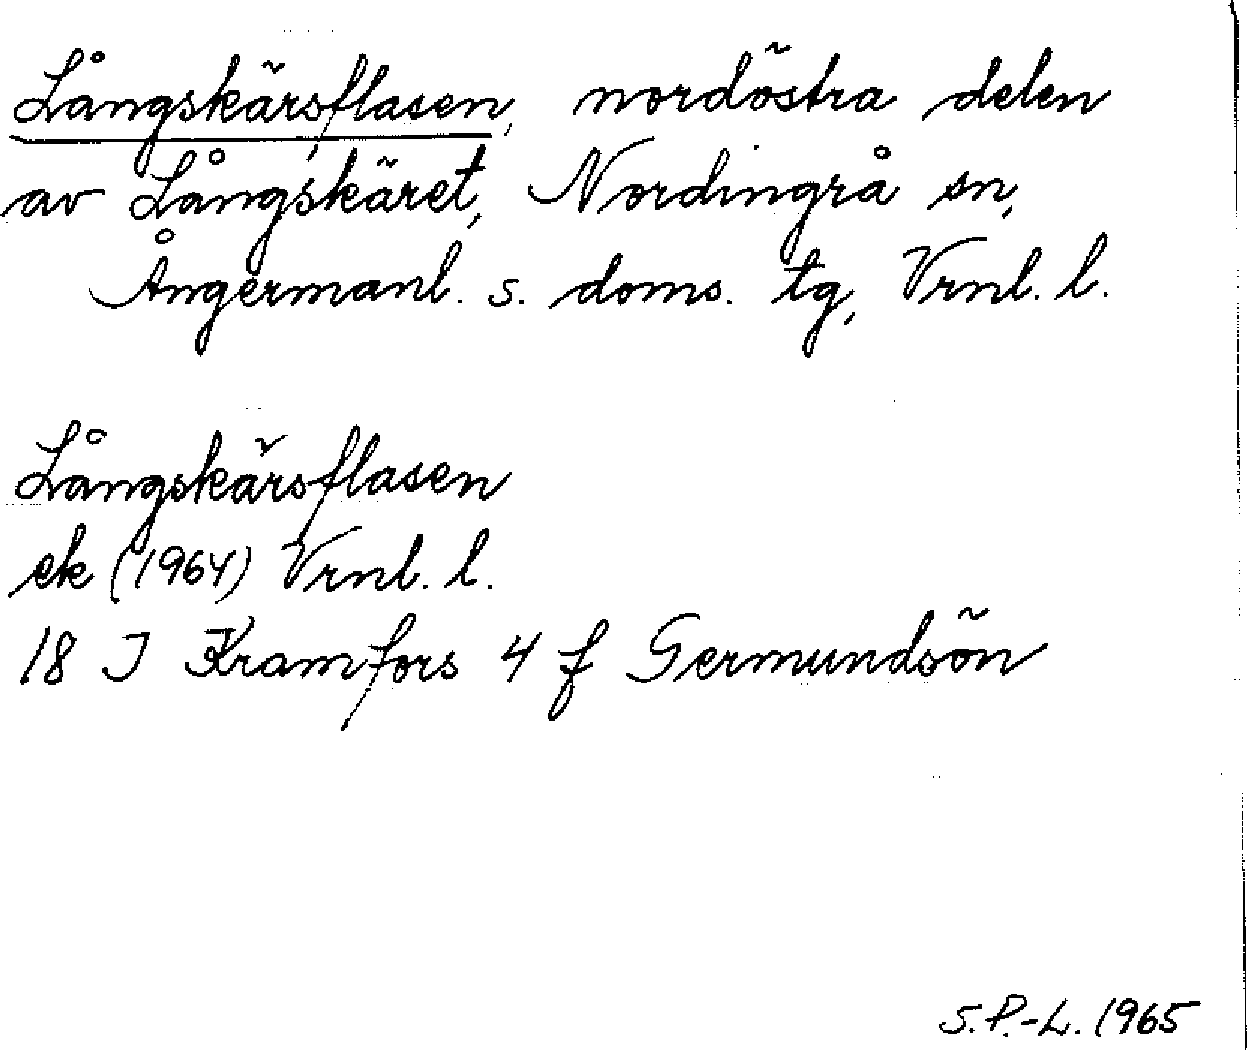 Långskärsflasen, nordöstra delen
av Långskäret, Nordingrå sn,
Ångermanl. s. doms. tg, Vrnl. l.
Långskärsflasen
ek (1964) Vrnl. l.
18 I Kramfors 4 f Germundsön
S.P.-L. 1965